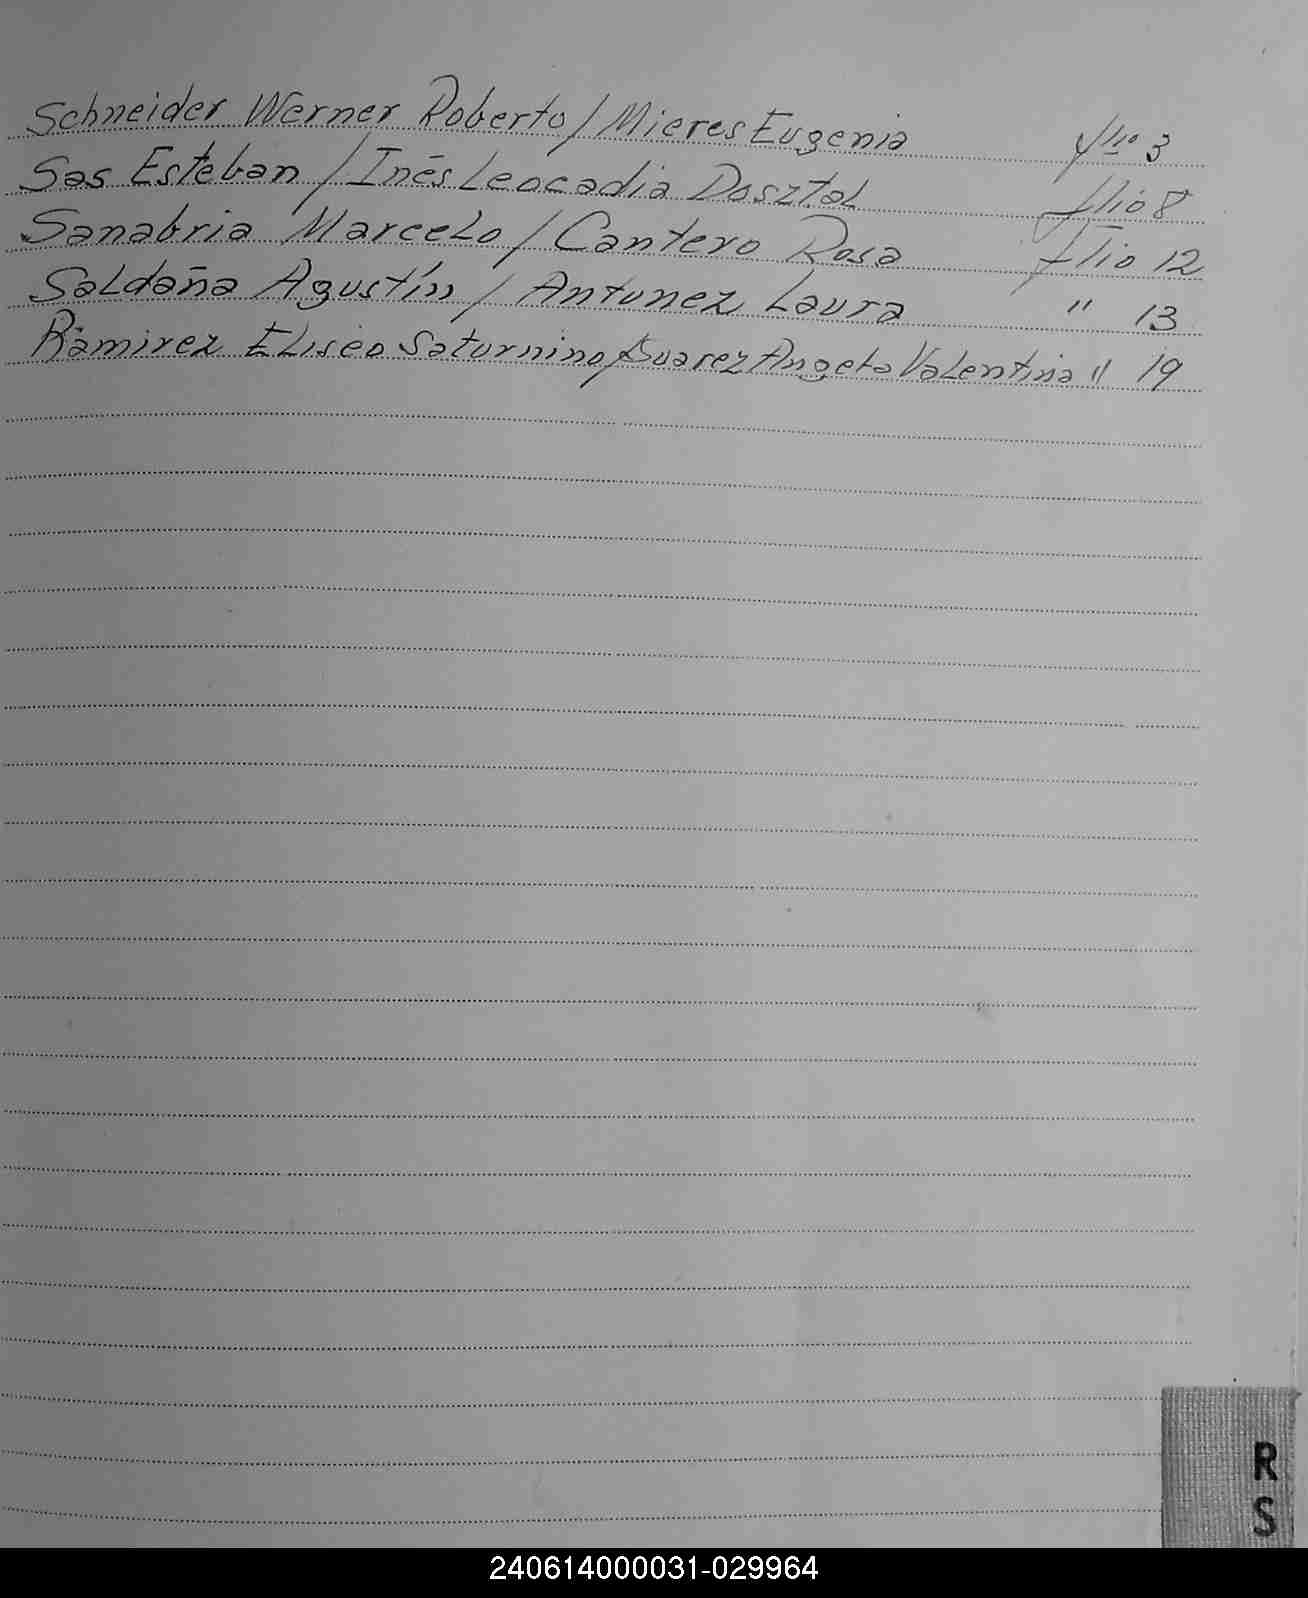 Schneider Werner Roberto / Mieres Eugenia flio 3
Sas Esteban / Inés Leocadia Dosztal flio 8
Sanabria Marcelo / Cantero Rosa flio 12
Saldaña Agustín / Antunez Laura " 13
Ramirez Eliseo Saturnino / Suarez Angela Valentina " 19
R
S
240614000031-029964